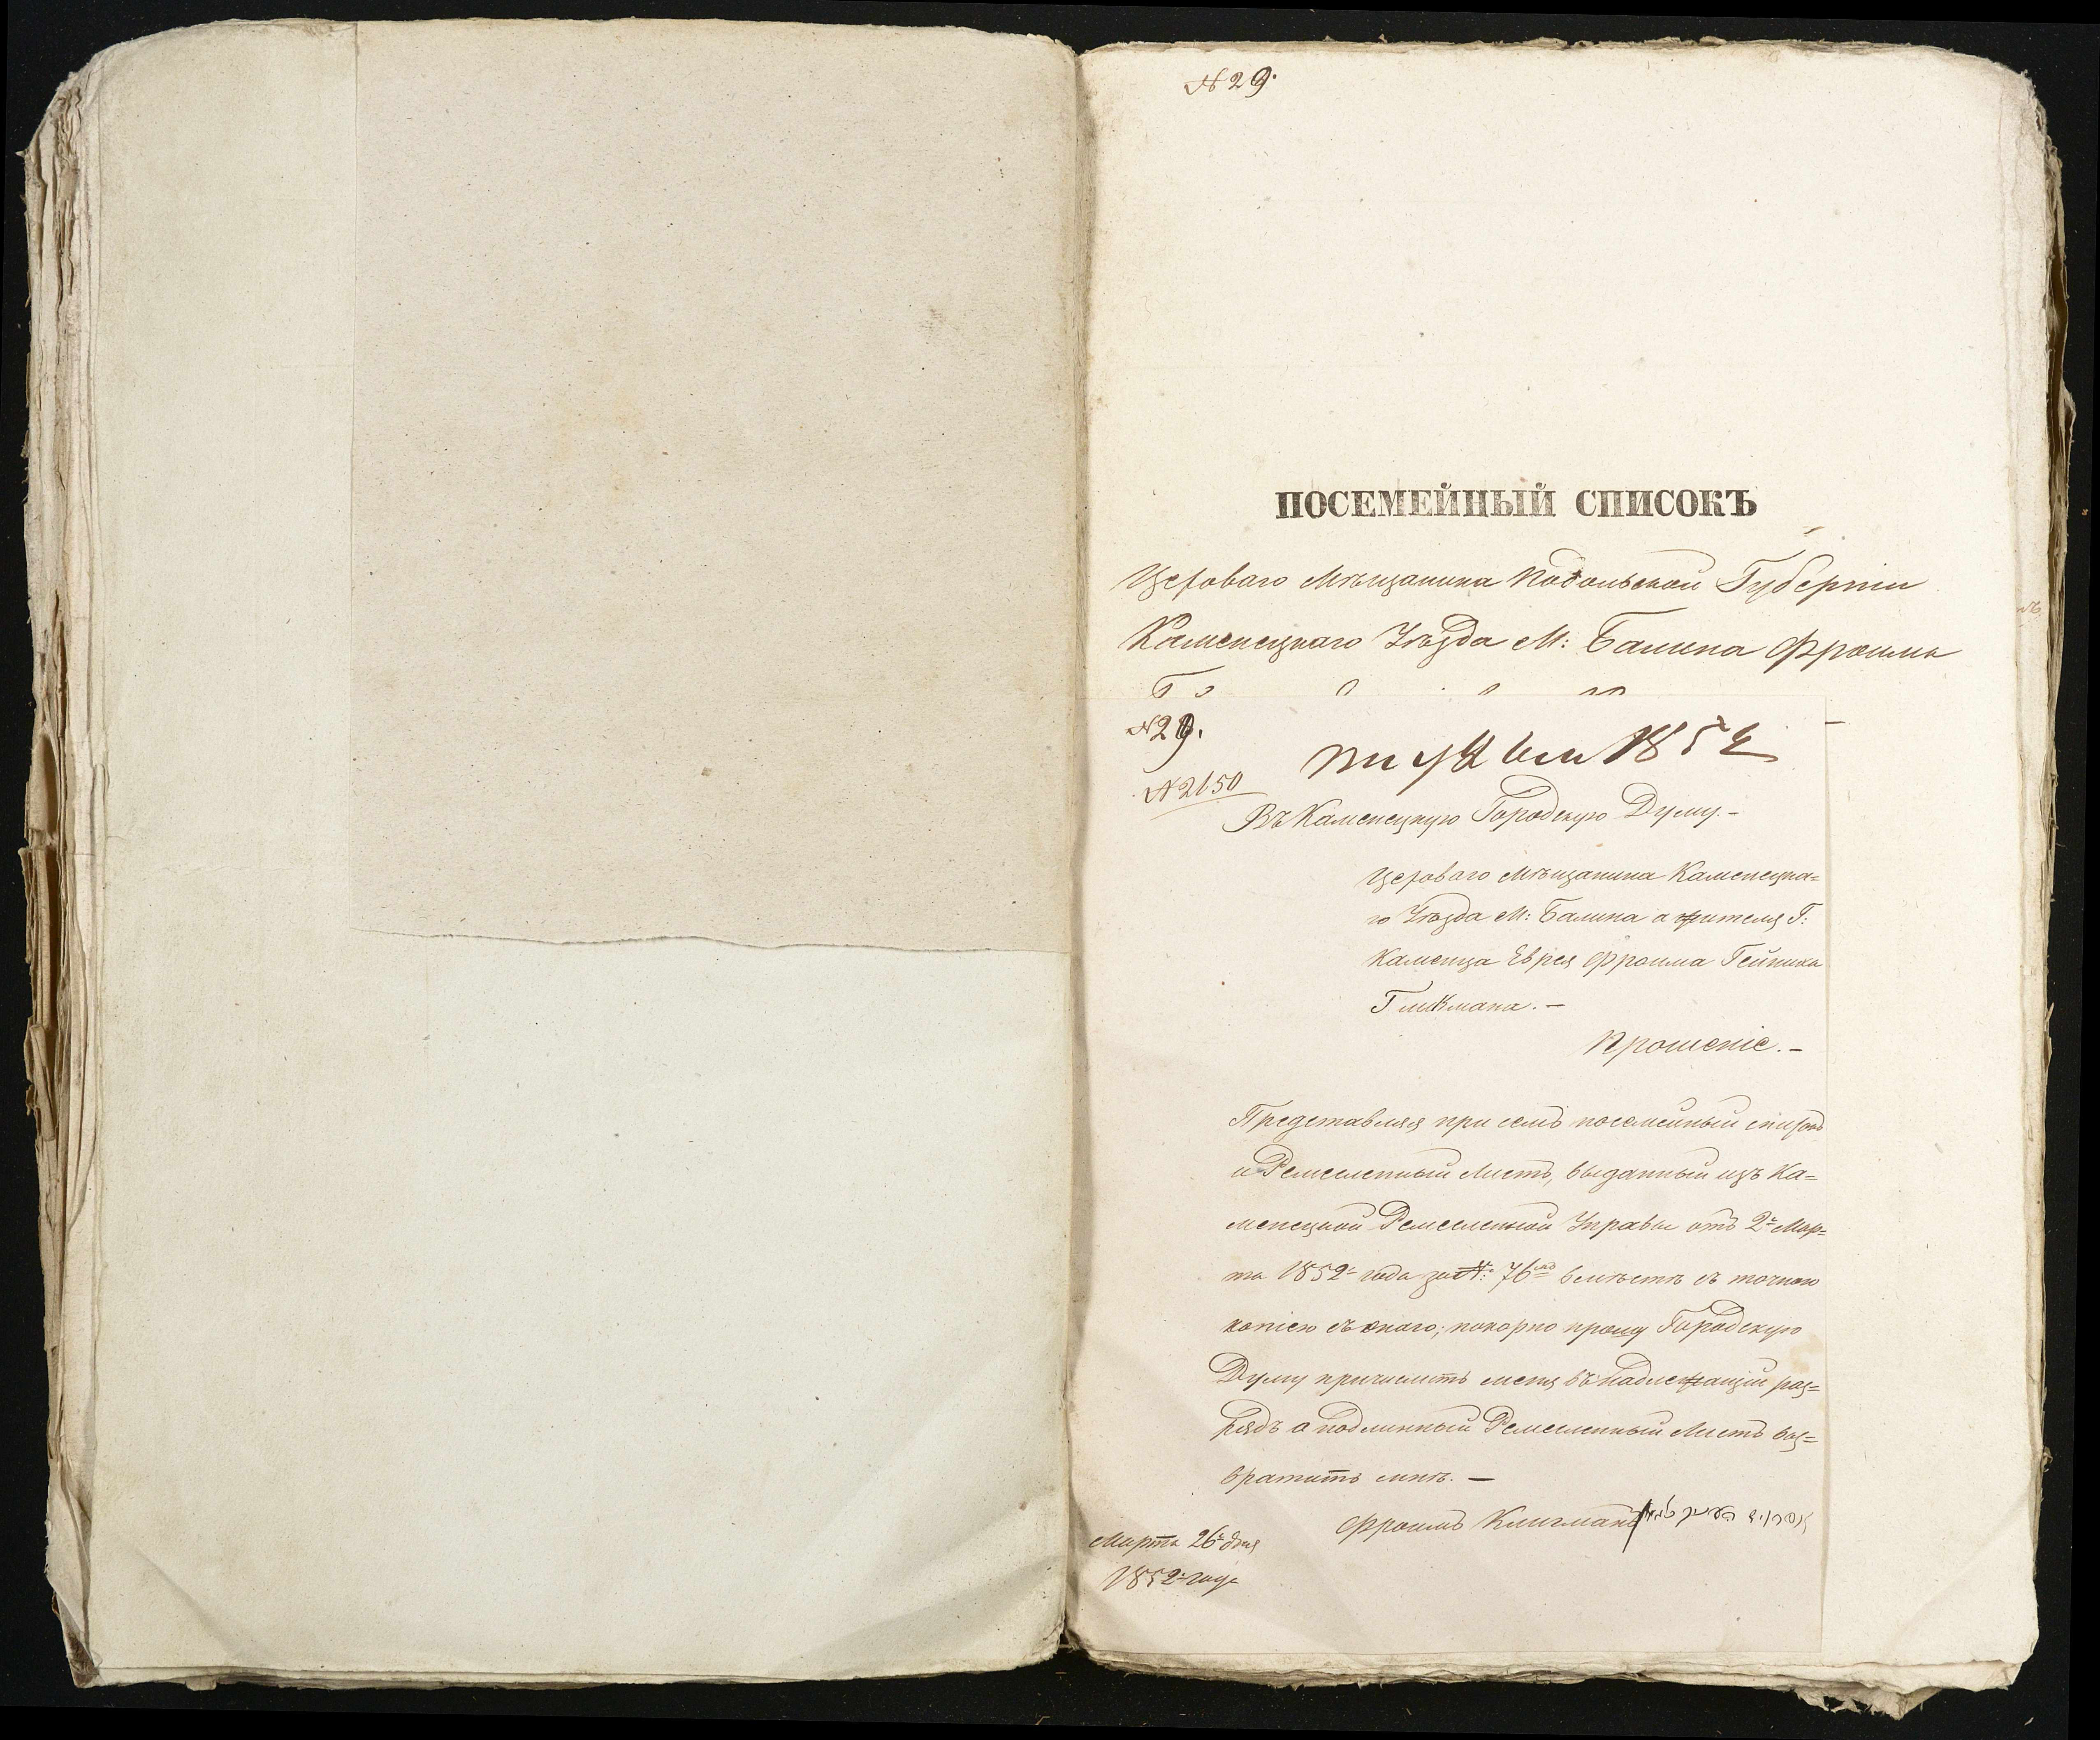 № 29.
ПОСЕМЕЙНЫЙ СПИСОКЪ
Цеховаго Мѣщанина Подольской Губерніи
Каменецкаго Уѣзда М: Балина Фроима
№ 29.
1852
№ 2150
Въ Каменецкую Городскую Думу.-
Цеховаго Мѣщанина Каменецка=
го Уѣзда М: Балина а жителя Г:
Каменца Еврея Фроима Гейниха
Гликмана.-
Прошеніе.-
Представляя при семъ посемейный списокъ
и Ремесленный Листъ, выданный изъ Ка=
менецкой Ремесленной Управы отъ 2го Мар=
та 1852го года за №: 76 вмѣстѣ съ точною
копіею съ онаго; покорно прошу Городскую
Думу причислить меня въ надлежащій раз=
рядъ а подлинный Ремесленный Листъ воз=
вратить мнѣ.-
Фроимъ Клигманъ
Марта 26го дня
1852го года